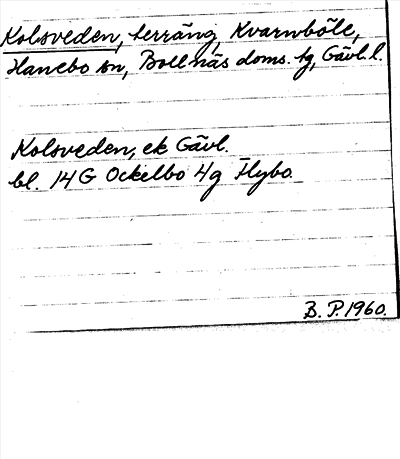 Kolsveden, terräng, Kvarnböle,
Hanebo sn, Bollnäs doms. tg, Gävl. l.
Kolsveden, ek Gävl.
bl. 14G Ockelbo 4g Flybo.
B. P. 1960.